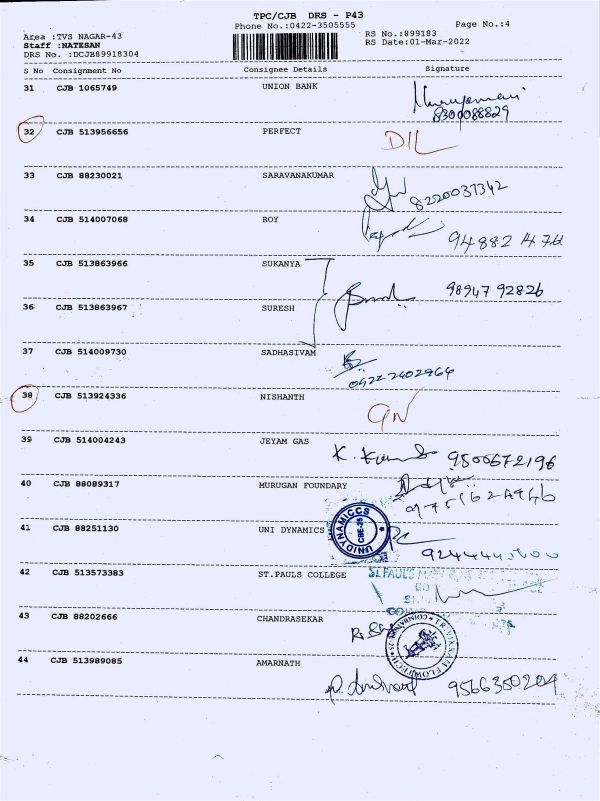 TPC/CJB DRS - P43
Phone No.:0422-3505555
Page No.:4
Area :TVS NAGAR-43
RS No.:899183
Staff :NATESAN
RS Date:01-Mar-2022
DRS No. :DCJB89918304
S No Consignment No Consignee Details Signature
31 CJB 1065749 UNION BANK
8300088829
32 CJB 513956656 PERFECT DIL
33 CJB 88230021 SARAVANAKUMAR
8220037342
34 CJB 514007068 ROY
94882
35 CJB 513863966 SUKANYA
98947 92826
36 CJB 513863967 SURESH
37 CJB 514009730 SADHASIVAM
0422-2402964
38 CJB 513924336 NISHANTH
39 CJB 514004243 JEYAM GAS
K. 9500672196
40 CJB 88089317 MURUGAN FOUNDARY
41 CJB 88251130 UNI DYNAMICS
UNIDYNAMICCS
CBE-25
42 CJB 513573383 ST.PAULS COLLEGE
ST.PAUL'S
43 CJB 88202666 CHANDRASEKAR
44 CJB 513989085 AMARNATH
9566350204